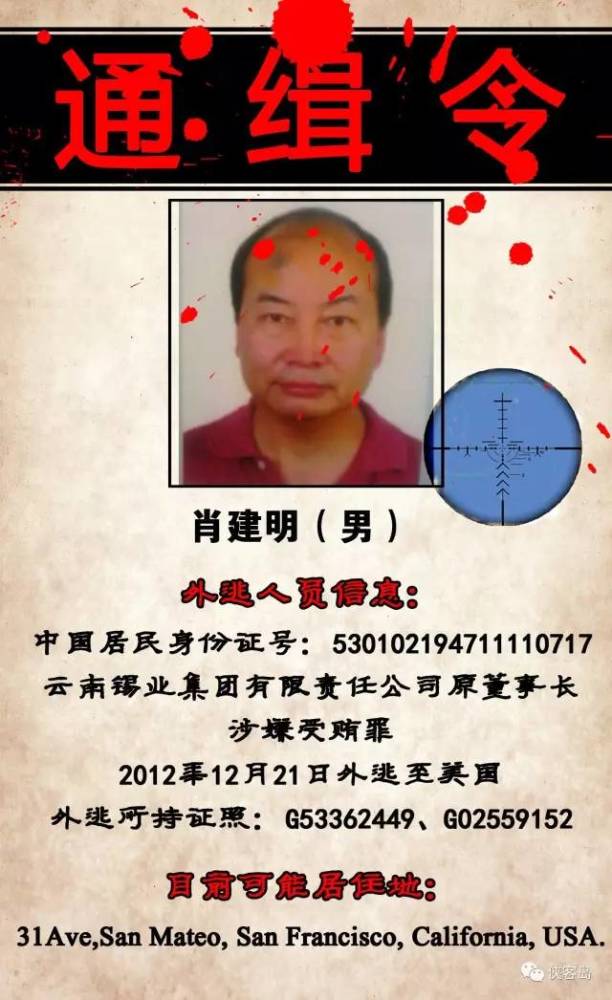 通缉令
肖建明（男）
外逃人员信息：
中国居民身份证号：530102194711110717
云南锡业集团有限责任公司原董事长
涉嫌受贿罪
2012年12月21日外逃至美国
外逃所持证照：G53362449、G02559152
目前可能居住地：
31Ave,San Mateo, San Francisco, California, USA.
侠客岛